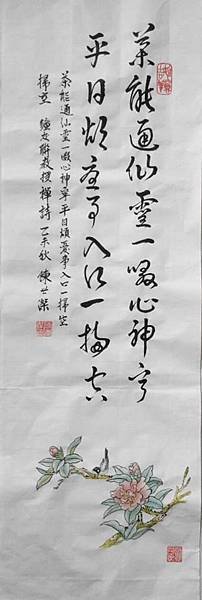 茶能通仙靈一啜心神寧
平日煩憂事入口一掃空
茶能通仙靈一啜心神寧平日煩憂事入口一掃空
鐘友聯教授禪詩 乙未秋 陳世